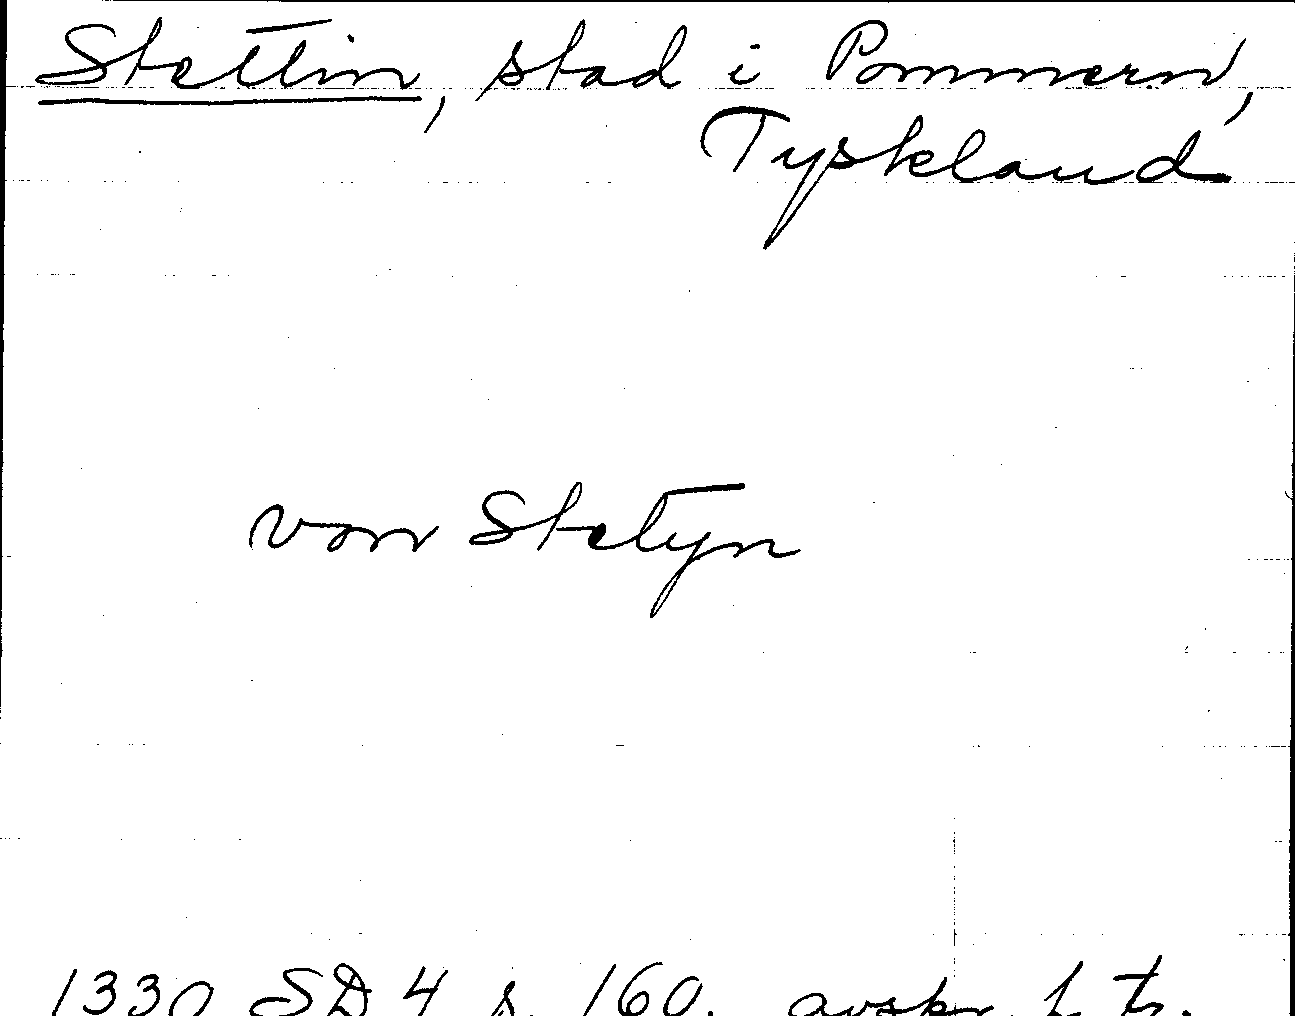 Stettin, stad i Pommern,
Tyskland
von Stetyn
1330 SD 4 s. 160. avskr. f. tr.